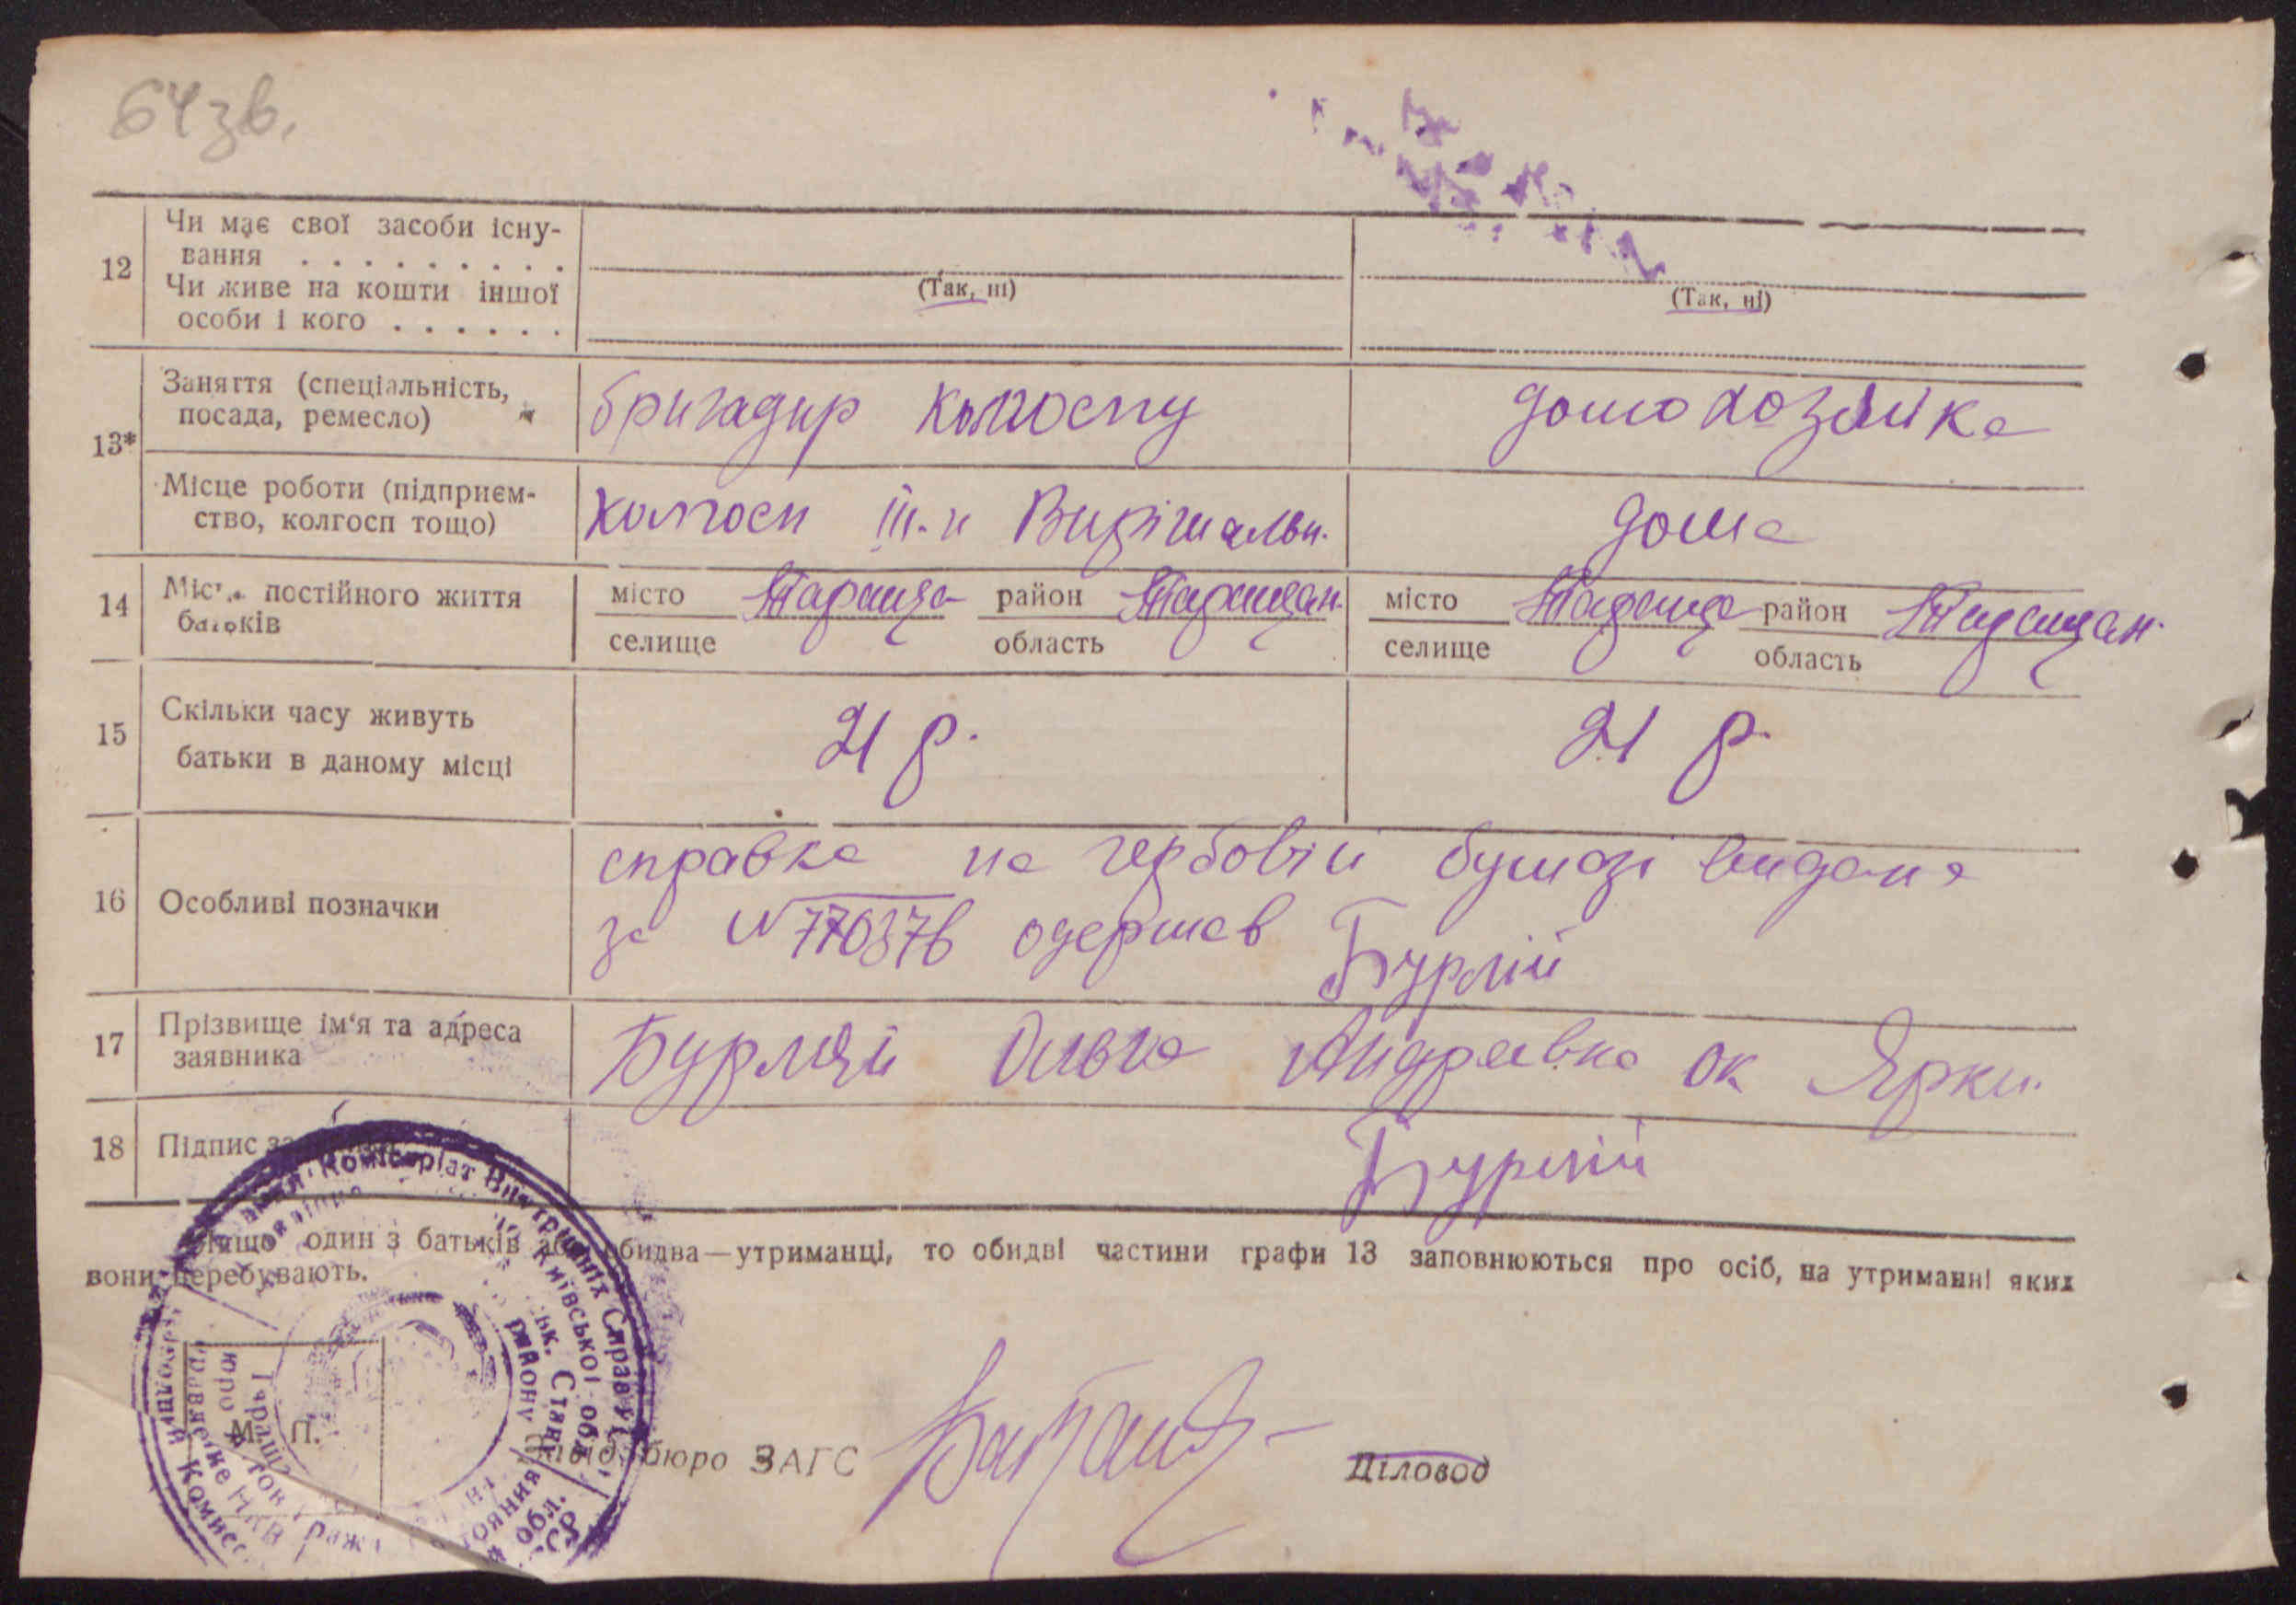 64зв.
12 Чи має свої засоби існу-
вання . . . . . . . . .
Чи живе на кошти іншої
особи і кого . . . . . .
(Так, ні) (Так, ні)
13* Заняття (спеціальність,
посада, ремесло) бригадир колгоспу домохозяйка
Місце роботи (підприєм-
ство, колгосп тощо) Колгосп III-й Вирішальн. дома
14 Місце постійного життя
батьків
місто Тараща район Таращан. місто Тараща район Таращан.
селище область селище область
15 Скільки часу живуть
батьки в даному місці 21 р. 21 р.
16 Особливі позначки справка на гербовій бумазі видана
за № 770376 одержав Бурлій
17 Прізвище ім'я та адреса
заявника Бурлій Ольга Андреевна ок Ярки.
18 Підпис Бурлій
Якщо один з батьків або обидва—утриманці, то обидві частини графи 13 заповнюються про осіб, на утриманні яких
вони перебувають.
Комісаріат Внутрішніх Справ
Київської обл.
Стану
району
М. П.
бюро ЗАГС
Діловод